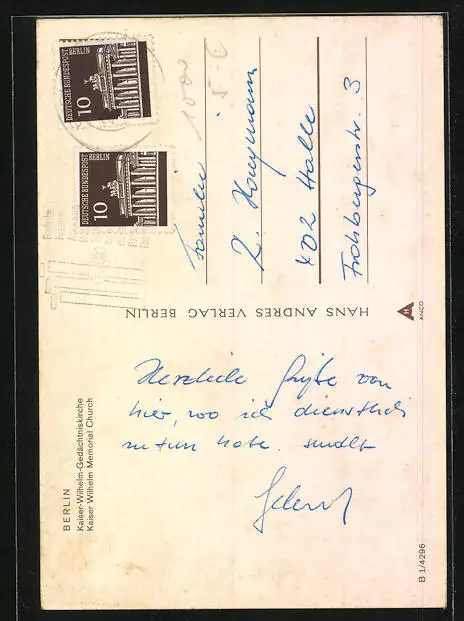 BERLIN
Kaiser-Wilhelm-Gedächtniskirche
Kaiser Wilhelm Memorial Church
Herzliche Grüße von
hier, wo ich dienstlich
zu tun habe. sendet
HANS ANDRES VERLAG BERLIN
ANCO
DEUTSCHE BUNDESPOST BERLIN
10
DEUTSCHE BUNDESPOST BERLIN
10
Familie
402 Halle
Frohbergerstr. 3
B 1/4296